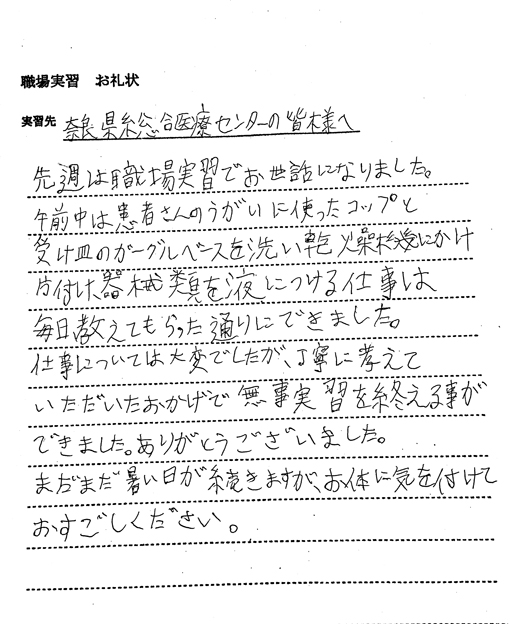 職場実習　お礼状
実習先 奈良県総合医療センターの皆様へ
先週は職場実習でお世話になりました。
午前中は患者さんのうがいに使ったコップと
受け皿のガーグルベースを洗い乾燥機にかけ
片付け、器械類を液につける仕事は
毎日教えてもらった通りにできました。
仕事については大変でしたが、丁寧に考えて
いただいたおかげで無事実習を終える事が
できました。ありがとうございました。
まだまだ暑い日が続きますが、お体に気を付けて
おすごしください。